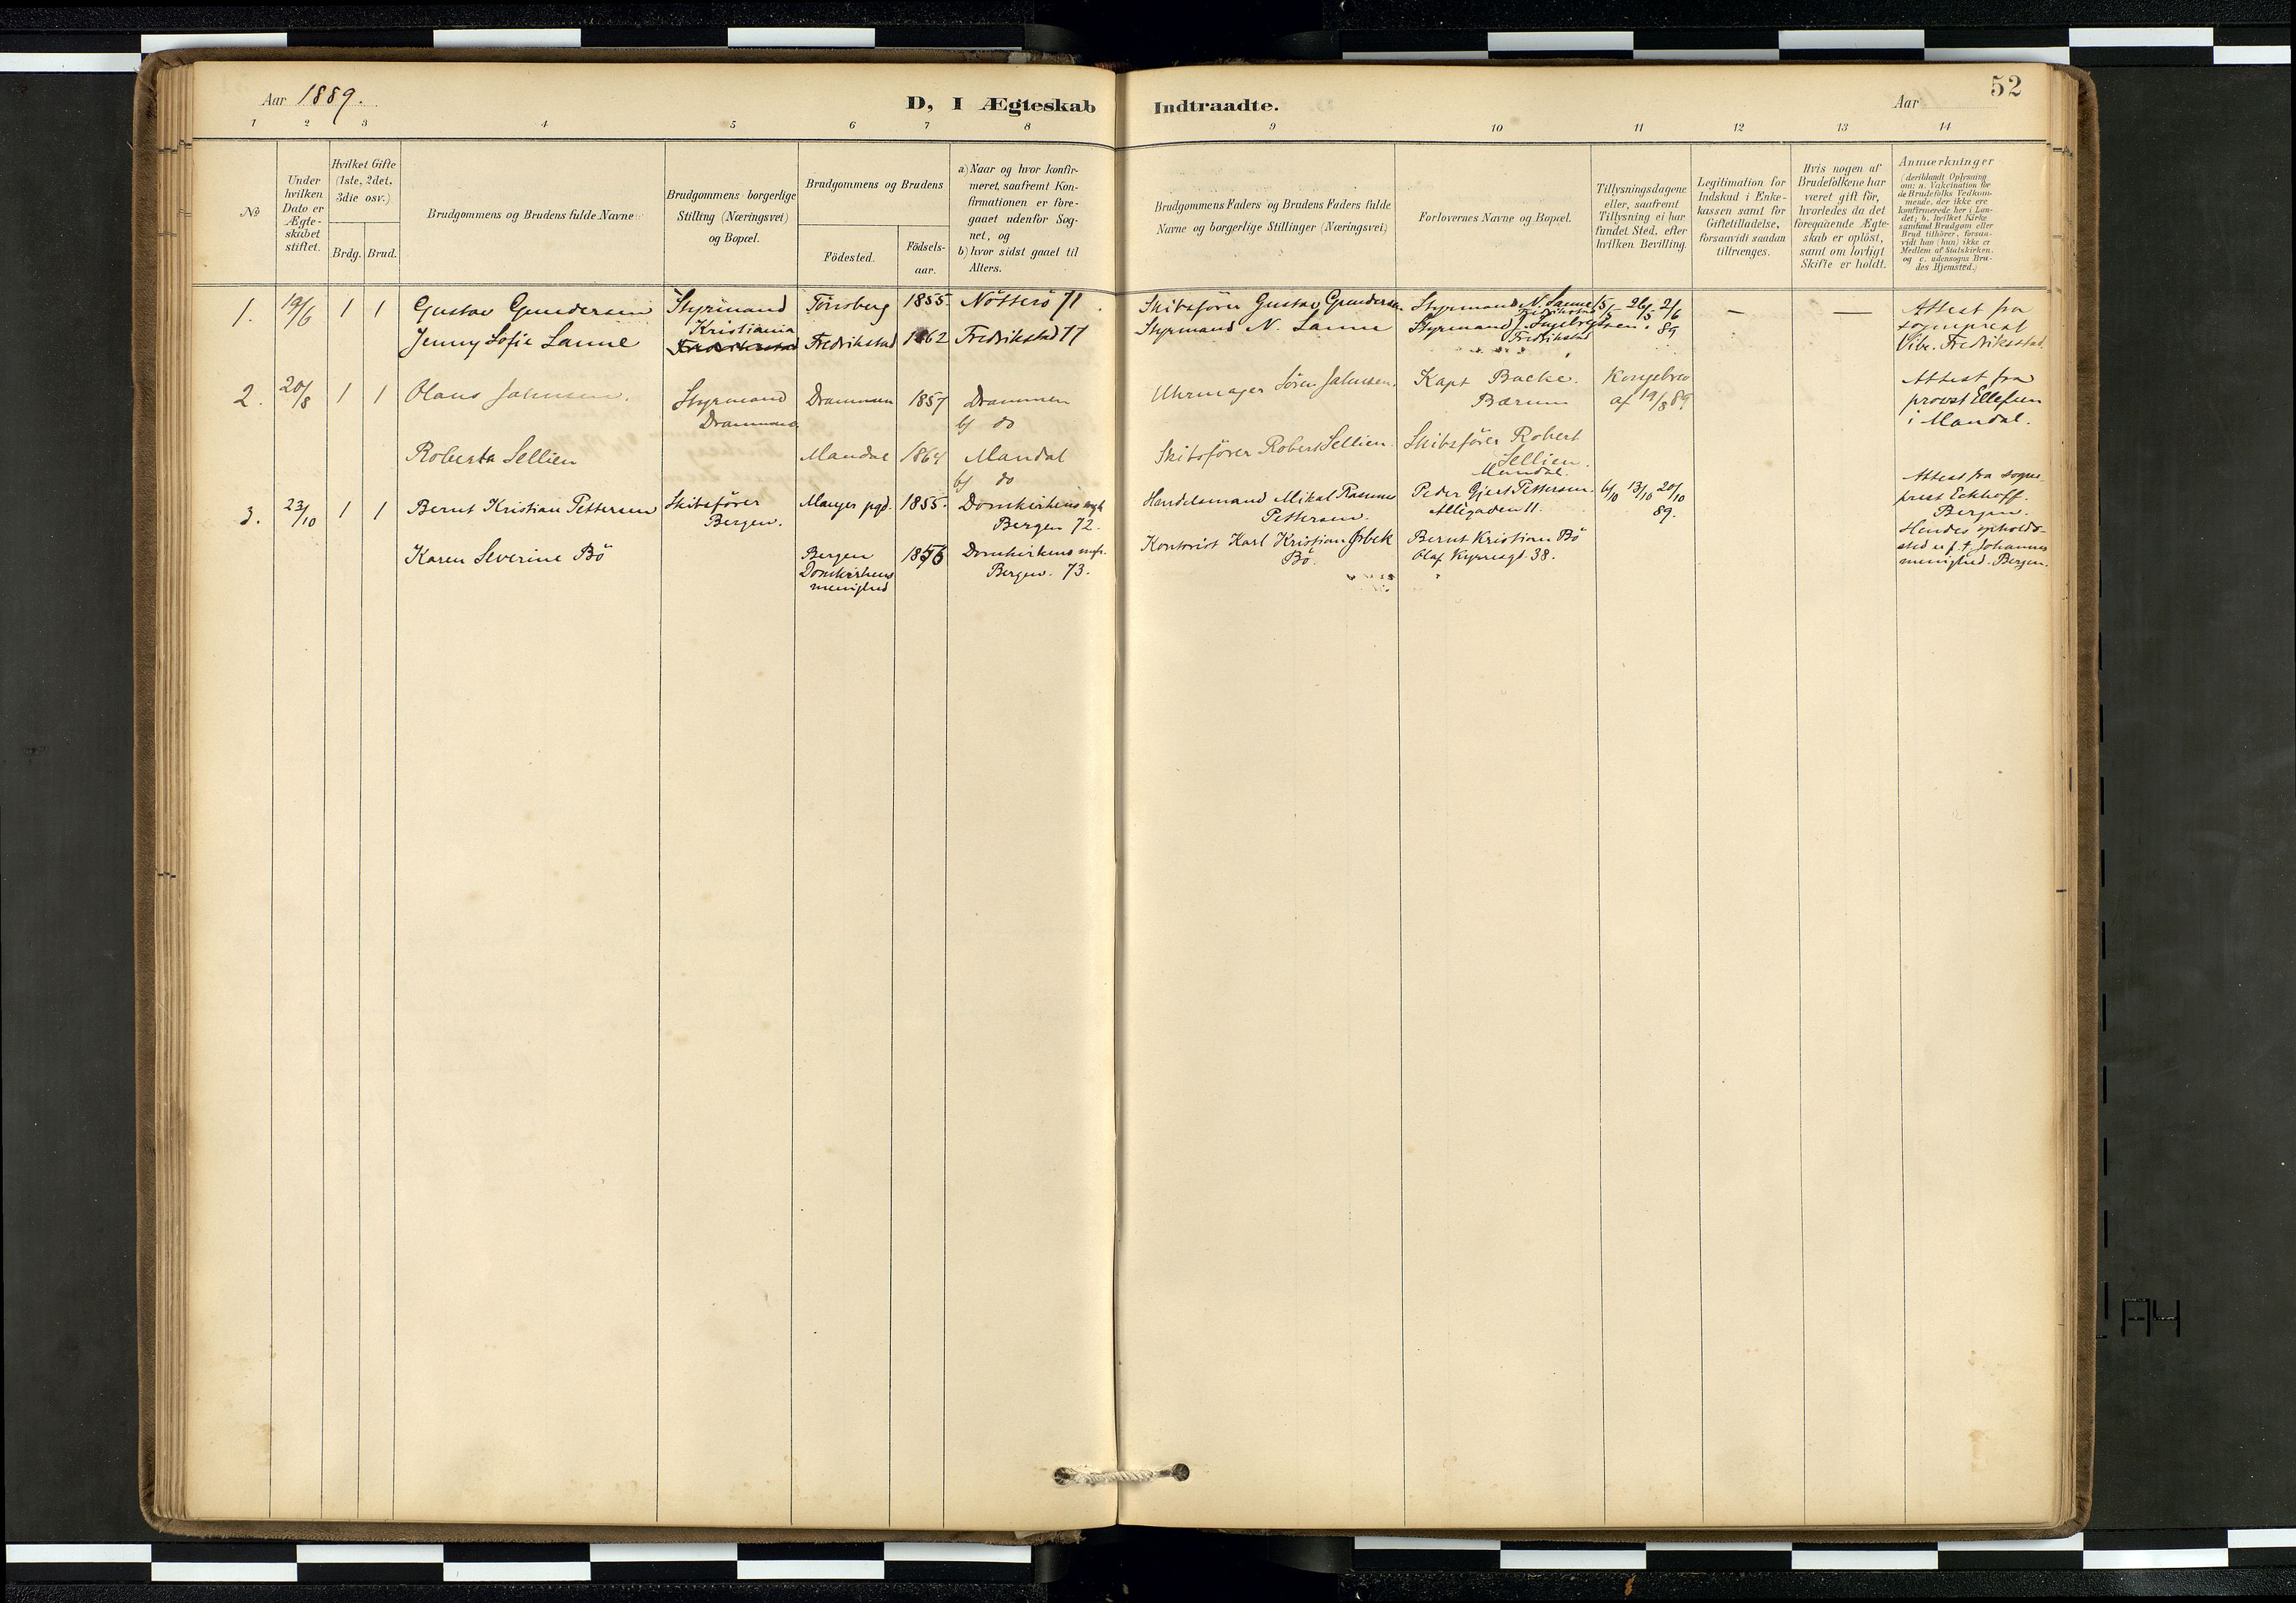 Aar 1889.
D, I Ægteskab Indtraadte.
Aar
52
1 2 3 4 5 6 7 8 9 10 11 12 13 14
No
Under
hvilken
Dato er
Ægte-
skabet
stiftet.
Hvilket Gifte
(1ste, 2det,
3die osv.)
Brdg. Brud.
Brudgommens og Brudens fulde Navne
Brudgommens borgerlige
Stilling (Næringsvei)
og Bopæl.
Brudgommens og Brudens
Födested.
Födsels-
aar.
a) Naar og hvor konfir-
meret, saafremt Kon-
firmationen er fore-
gaaet udenfor Sog-
net, og
b) hvor sidst gaaet til
Alters.
Brudgommens Faders og Brudens Faders fulde
Navne og borgerlige Stillinger (Næringsvei)
Forlovernes Navne og Bopæl.
Tillysningsdagene
eller, saafremt
Tillysning ei har
fundet Sted, efter
hvilken Bevilling.
Legitimation for
Indskud i Enke-
kassen samt for
Giftetilladelse,
forsaavidt saadan
tiltrænges.
Hvis nogen af
Brudefolkene har
været gift för,
hvorledes da det
foregaaende Ægte-
skab er oplöst,
samt om lovligt
Skifte er holdt.
Anmærkninger
(deriblandt Oplysning
om: a. Vakcination for
de Brudefolks Vedkom-
mende, der ikke ere
konfirmerede her i Lan-
det; b. hvilket Kirke
samfund Brudgom eller
Brud tilhörer, forsaa-
vidt han (hun) ikke er
Medlem af Statskirken,
og c. udensogns Bru-
des Hjemsted.)
1. 19/6 1 1 Gustav Gundersen
Styrmand
Kristiania
Fredrikstad
Tönsberg 1855. Nötterö 71.
Skibsförer Gustav Gundersen
Styrmand N. Lanne
Fredrikstad
26/5 2/6
89
— —
Attest fra
sogneprest
Vibe. Fredriksstad.
Jenny Sofie Lanne
Fredrikstad 1862 Fredrikstad 77
Styrmand N. Lanne
Styrmand J. Ingebrigtsen.
Fredrikstad
2. 20/8 1 1 Olaus Jahnsen.
Styrmand
Drammen
Drammen 1857 Drammen
b) do
Uhrmager Sören Jahnsen.
Kapt Backe.
Bærum
Kongebrev
af 19/8 89
Attest fra
provst Ellefsen
i Mandal.
Roberta Sellien
Mandal 1864 Mandal
b) do
Skibsförer Robert Sellien.
Skibsförer Robert
Sellien.
Mandal.
3. 23/10 1 1 Bernt Kristian Pettersen
Skibsförer
Bergen.
Manger pgd. 1855. Domkirkens
Bergen 72.
Handelsmand Mikal Rasmus
Pettersen.
Peder Gjert Pettersen.
Allégaden 11.
6/10 13/10 20/10
89.
Attest fra sogne
prest Eckhoff.
Bergen.
Hendes opholds-
sted er f. t. Johannes
menighed. Bergen.
Karen Severine Bö
Bergen
Domkirkens
menighed
1856 Domkirkens
Bergen. 73.
Kontorist Karl Kristian
Bö.
Bernt Kristian Bö
Olaf Kyrresgd. 38.